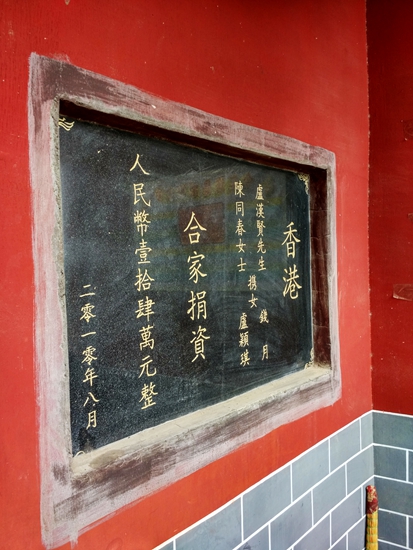 香港
盧漢賢先生 携女 月
陳同春女士 盧穎琪
合家捐資
人民幣壹拾肆萬元整
二零一零年八月